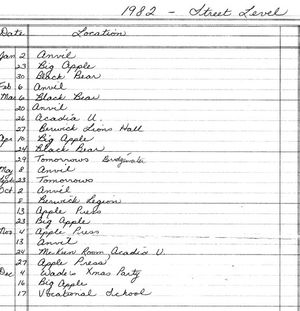 1982 - Street Level
Date Location
Jan 2 Anvil
23 Big Apple
30 Black Bear
Feb 6 Anvil
Mar 6 Black Bear
20 Anvil
26 Acadia U.
27 Berwick Lions Hall
Apr 10 Big Apple
24 Black Bear
29 Tomorrows Bridgewater
May 8 Anvil
Sept 23 Tomorrows
Oct 2 Anvil
8 Berwick Legion
13 Apple Press
23 Big Apple
Nov 4 Apple Press
13 Anvil
24 McKeen Room, Acadia U.
27 Apple Press
Dec 4 Wade's Xmas Party
16 Big Apple
17 Vocational School